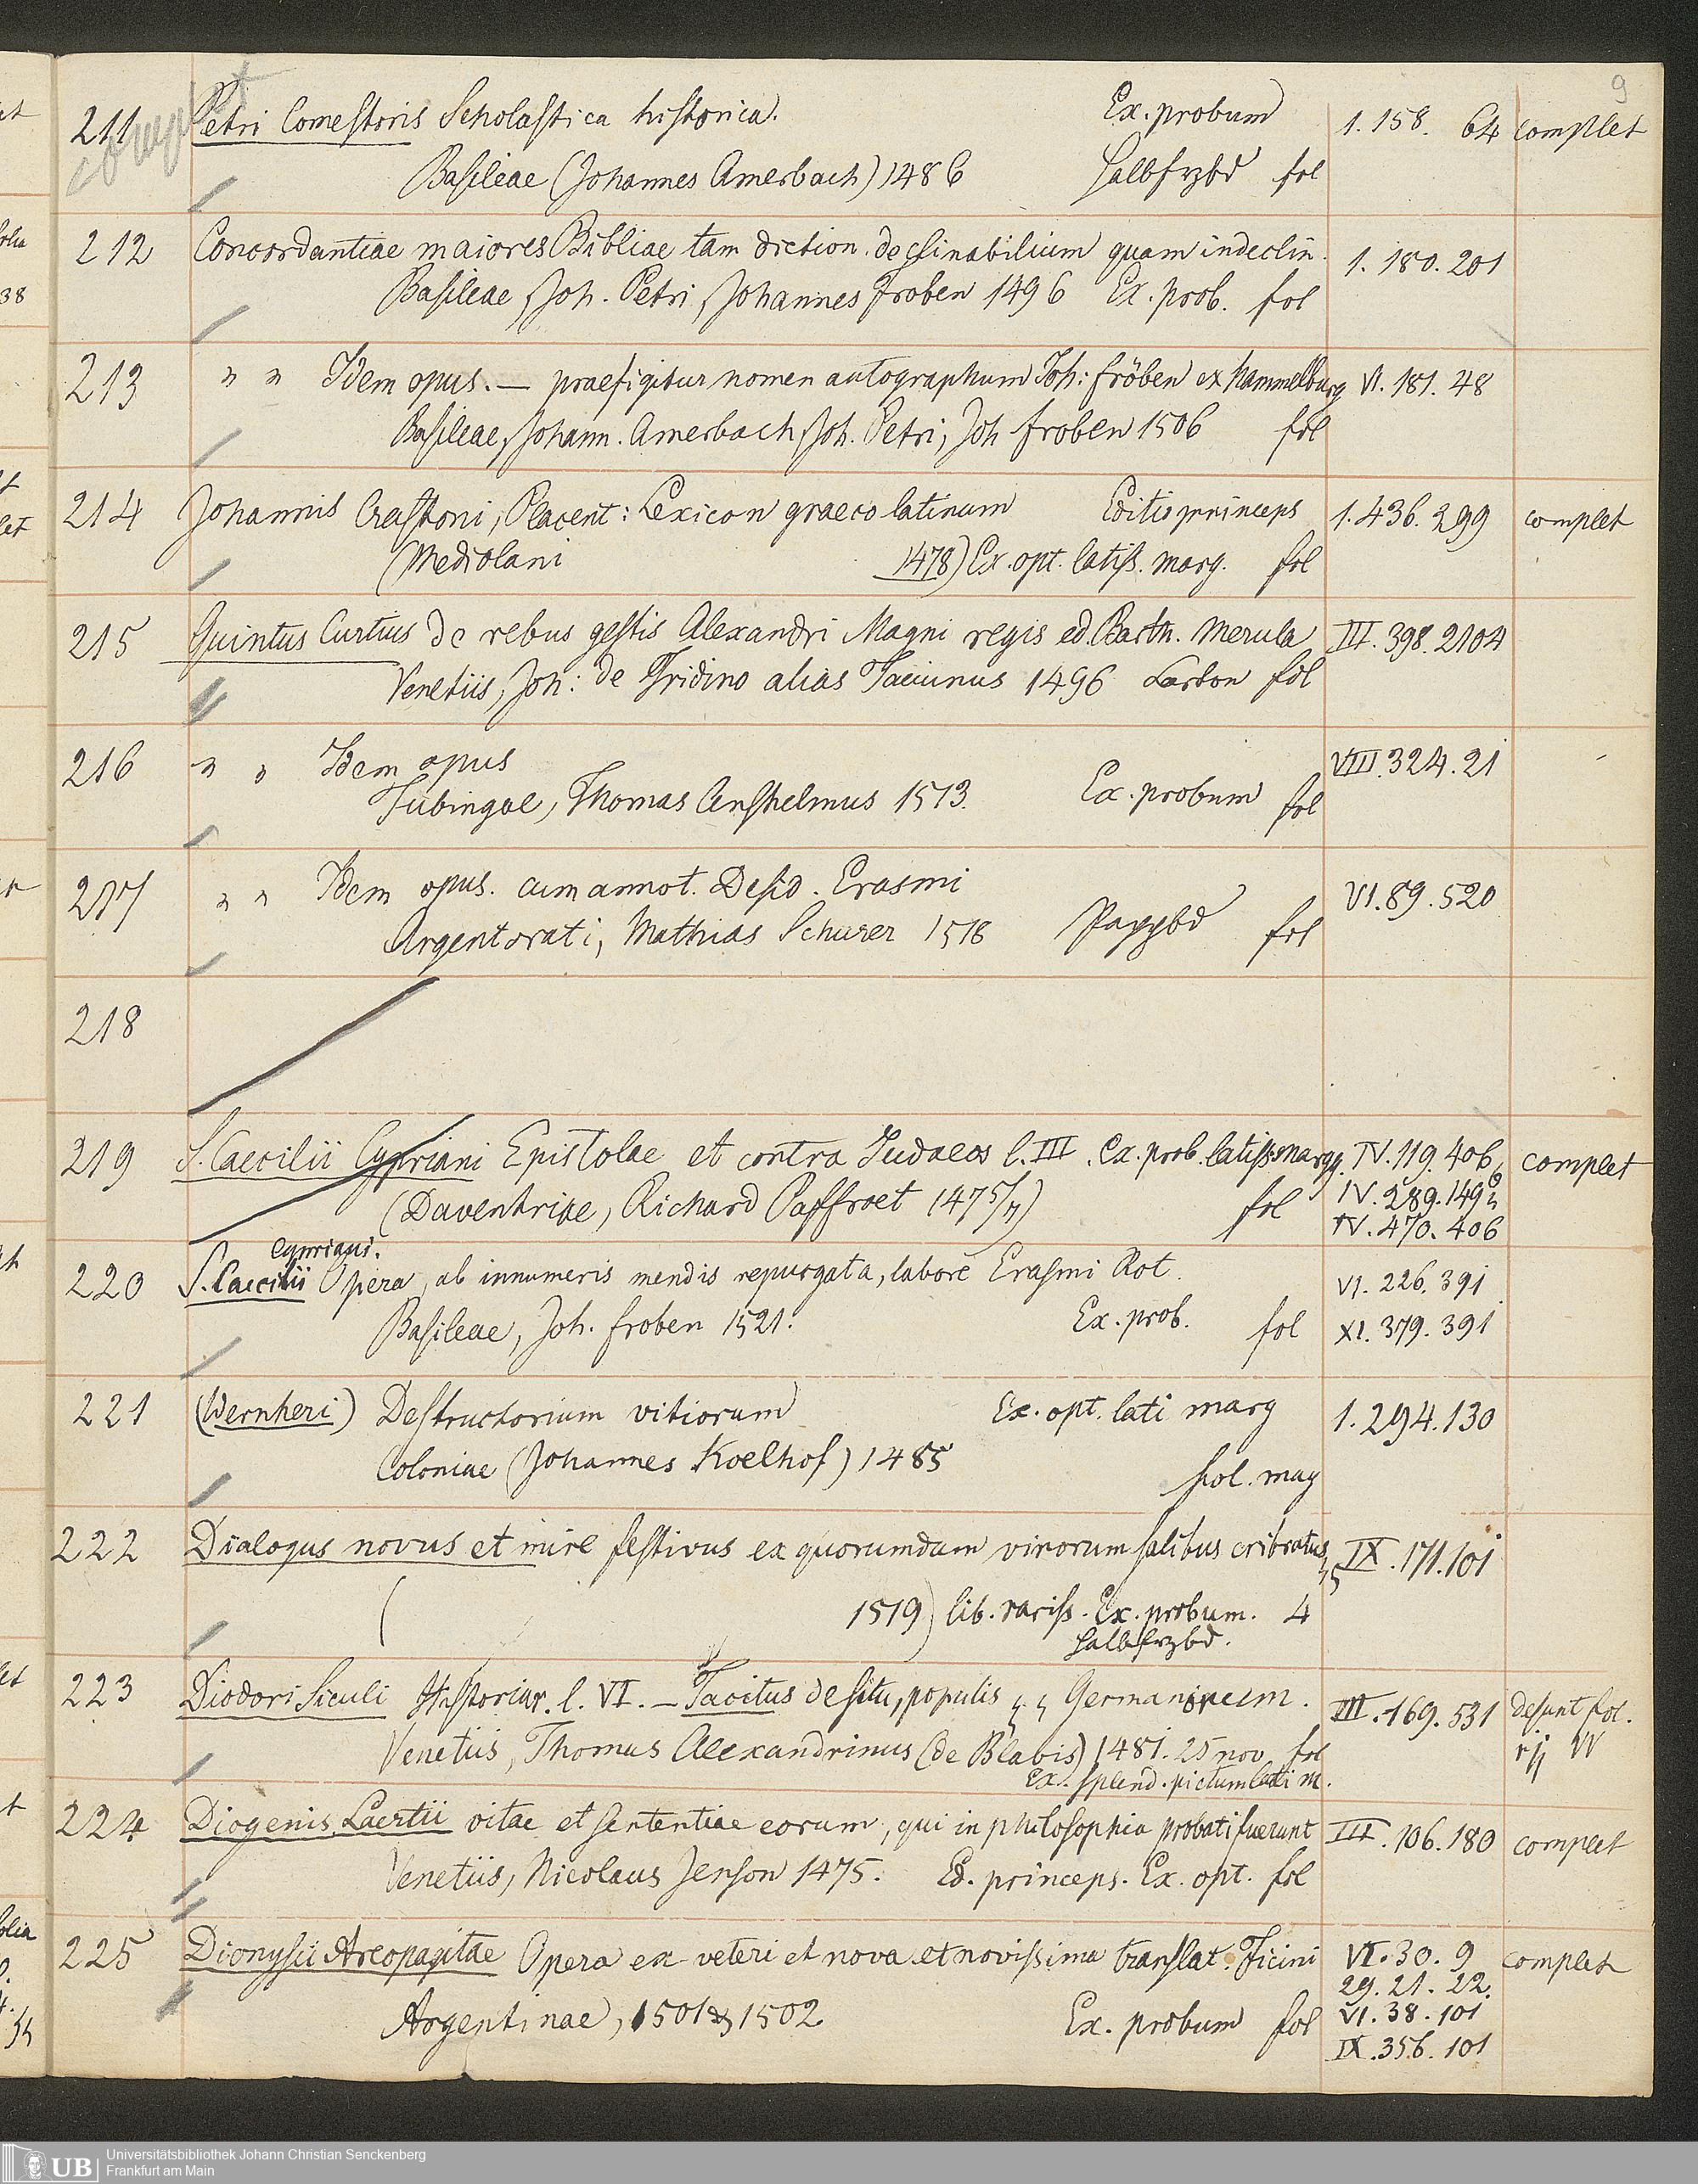 9
211 Petri Comestoris Scholastica historica. Ex. probum 1. 158. 64 complet
complet
Basileae (Johannes Amerbach) 1486 Halbfrzbd fol
212 Concordantiae maiores Bibliae tam diction. declinabilium quam indeclin. 1. 180. 201
Basileae, Joh. Petri, Johannes Froben 1496 Ex. prob. fol
213 " " Idem opus. — praefigitur nomen autographum Joh: Fröben ex Hammelburg VI. 181. 48
Basileae, Johann. Amerbach, Joh. Petri, Joh Froben 1506 fol
214 Johannis Crastoni, Placent: Lexicon graeco latinum Editio princeps 1. 436. 299 complet
(Mediolani 1478) Ex. opt. latiss. marg. fol
215 Quintus Curtius de rebus gestis Alexandri Magni regis ed. Barth. Merula III. 398. 2104
Venetiis, Joh: de Tridino alias Tacuinus 1496 Carton fol
216 " " Idem opus VIII. 324. 21
Tubingae, Thomas Anshelmus 1513. Ex. probum fol
217 " " Idem opus. cum annot. Desid. Erasmi VI. 89. 520
Argentorati, Mathias Schurer 1518 Pappbd fol
218
219 S. Caecilii Cypriani Epistolae et contra Judaeos l. III. Ex. prob. latiss. marg. IV. 119. 406 complet
(Daventriae, Richard Paffroet 1475/7) fol IV. 289. 149
IV. 470. 406
Cypriani.
220 S. Caecilii Opera, ab innumeris mendis repurgata, labore Erasmi Rot. VI. 226. 391
Basileae, Joh. Froben 1521. Ex. prob. fol XI. 379. 391
221 (Wernheri) Destructorium vitiorum Ex. opt. lati marg 1. 294. 130
Coloniae (Johannes Koelhof) 1485 fol. mag
222 Dialogus novus et mire festivus ex quorumdam virorum salibus cribratus, IX. 171. 101
( 1519) lib. rariss. Ex. probum. 4
Halbfrzbd.
223 Diodori Siculi Historiar. l. VI. — Tacitus de situ, populis Germanorum. III. 169. 531 desunt fol.
Venetiis, Thomas Alexandrinus (de Blabis) 1481. 25 nov fol
Ex. splend. pictum lati m.
224 Diogenis Laertii vitae et sententiae eorum, qui in philosophia probati fuerunt III. 106. 180 complet
Venetiis, Nicolaus Jenson 1475. Ed. princeps. Ex. opt. fol
225 Dionysii Areopagitae Opera ex veteri et nova et novissima translat. Ficini VI. 30. 9 complet
29. 21. 22.
Argentinae, 1501 & 1502 Ex. probum fol VI. 38. 101
IX. 356. 101
UB Universitätsbibliothek Johann Christian Senckenberg
Frankfurt am Main